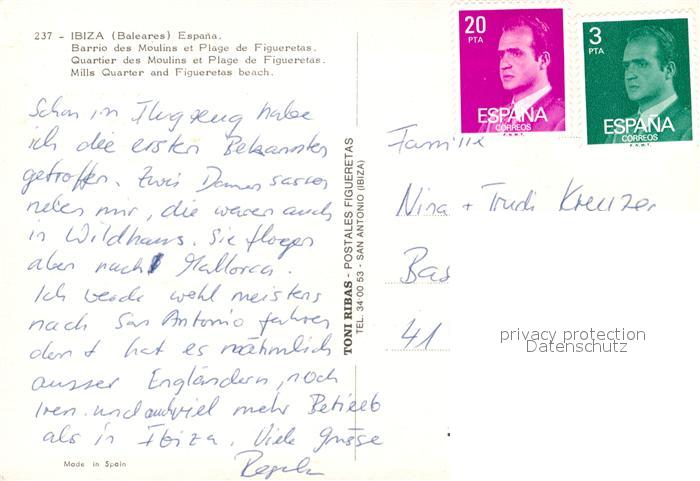 237 - IBIZA (Baleares) España.
Barrio des Moulins et Plage de Figueretas.
Quartier des Moulins et Plage de Figueretas.
Mills Quarter and Figueretas beach.
Schon im Flugzeug habe
ich die ersten Bekannten
getroffen. Zwei Damen sassen
neben mir, die waren auch
in Wildhaus. Sie flogen
aber nach Mallorca.
Ich werde wohl meistens
nach San Antonio fahren
dort hat es nähmlich
ausser Engländern, noch
Iren und auch viel mehr Betrieb
als in Ibiza. Viele Grüsse
Regula
Made in Spain
TONI RIBAS - POSTALES FIGUERETAS
TEL. 34 00 53 - SAN ANTONIO (IBIZA)
20
PTA
ESPAÑA
CORREOS
F.N.M.T.
3
PTA
ESPAÑA
CORREOS
F.N.M.T.
Familie
Nina + Trudi Kreuzer
Bas
41
privacy protection
Datenschutz